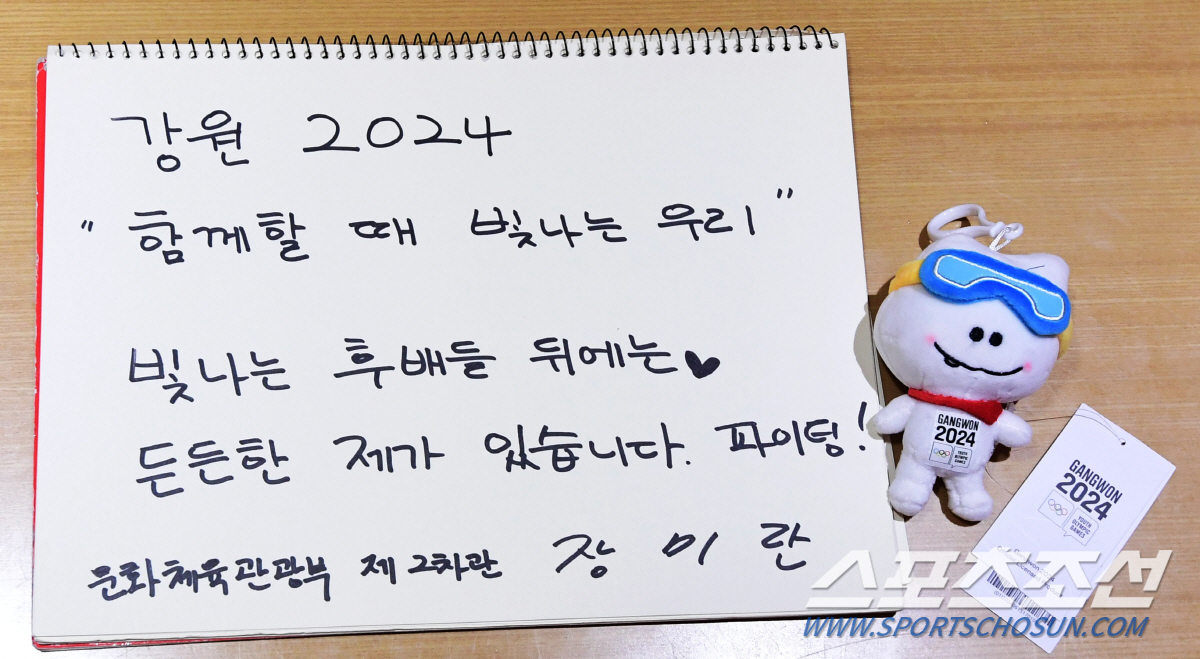 강원 2024
" 함께할 때 빛나는 우리 "
빛나는 후배들 뒤에는♥
든든한 제가 있습니다. 파이팅!
문화체육관광부 제2차관 장미란
GANGWON
2024
YOUTH
OLYMPIC
GAMES
GANGWON
2024
YOUTH
OLYMPIC
GAMES
스포츠조선
WWW.SPORTSCHOSUN.COM